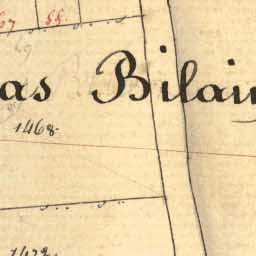 67 55
69
as Bilain
1468
1472